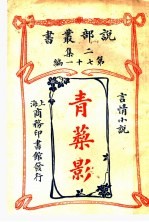 說部叢書
二集
第七十一編
言情小說
青藜影
上海商務印書館發行